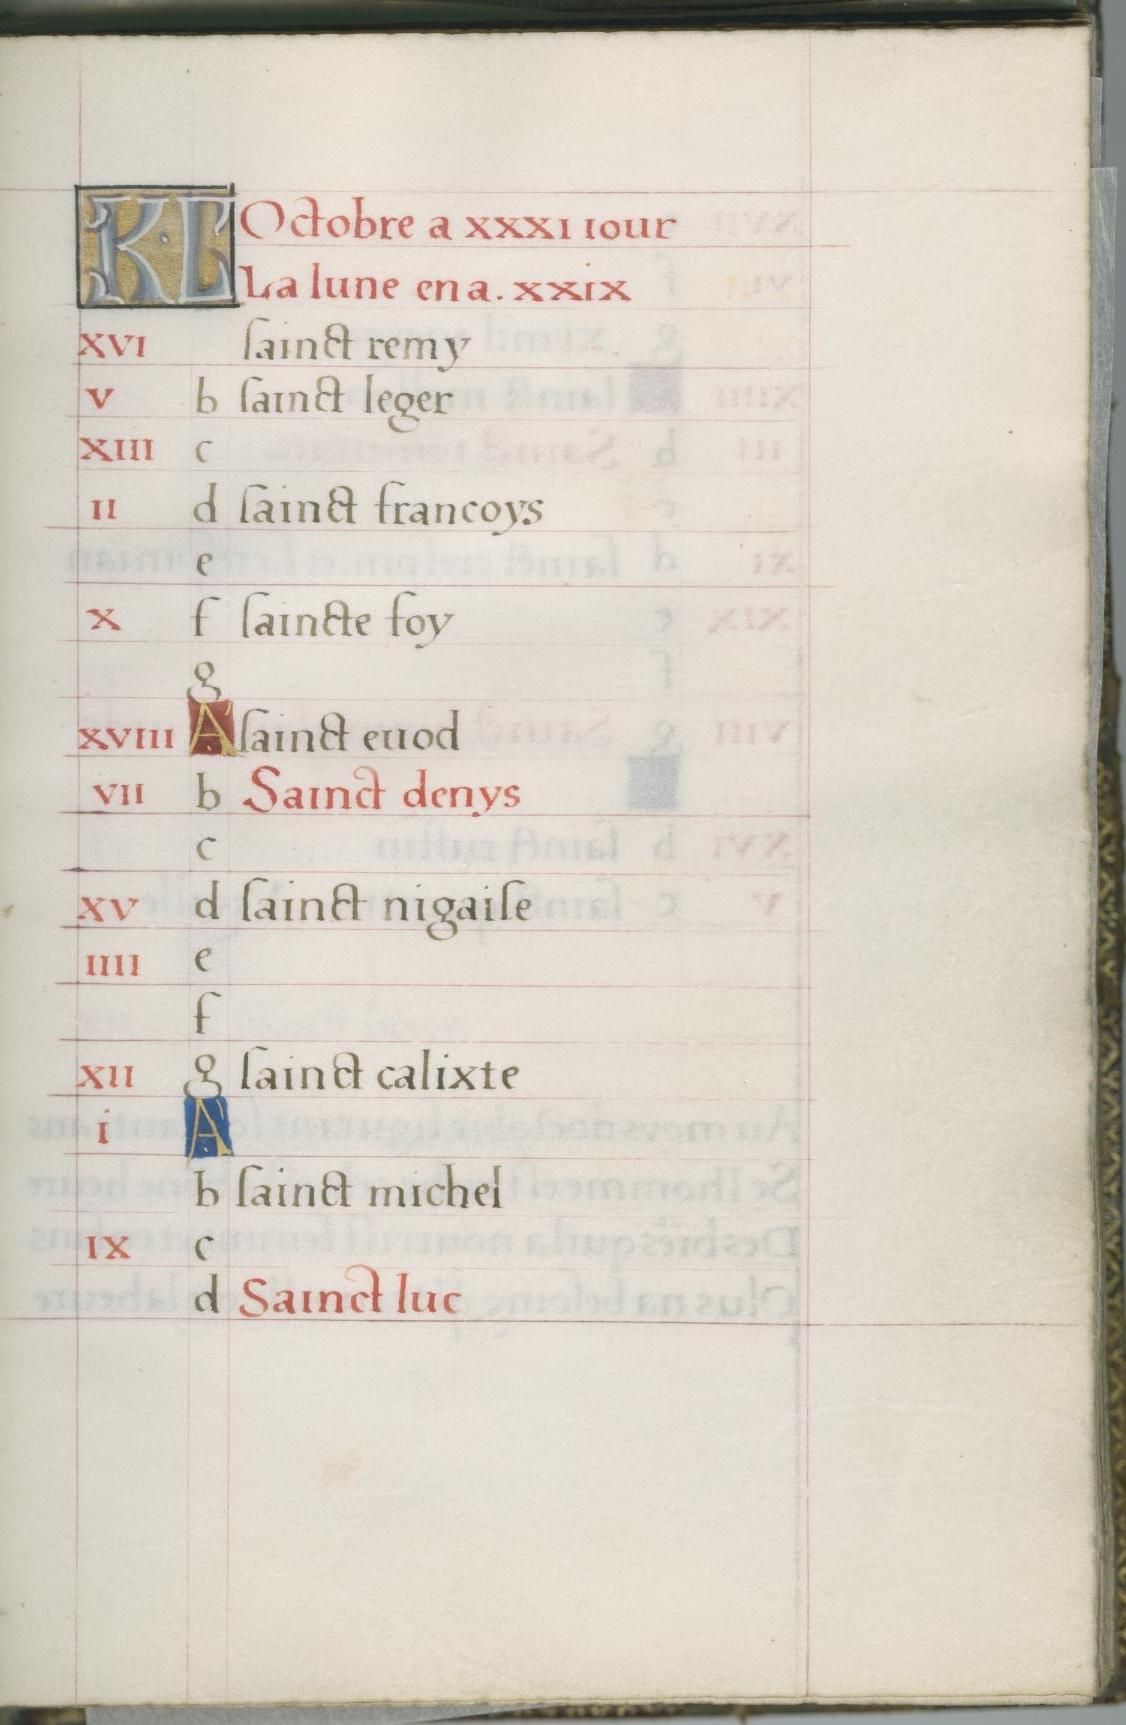 KL Octobre a xxxı ıour
La lune en a. xxıx
xvı ſaınct remy
v b ſaınct leger
xııı c
ıı d ſaınct francoys
e
x f ſaıncte foy
g
xvııı A ſaınct euod
vıı b Saınct denys
c
xv d ſaınct nigaiſe
ıııı e
f
xıı g ſaınct calixte
i A
b ſaınct michel
ıx c
d Saınct luc